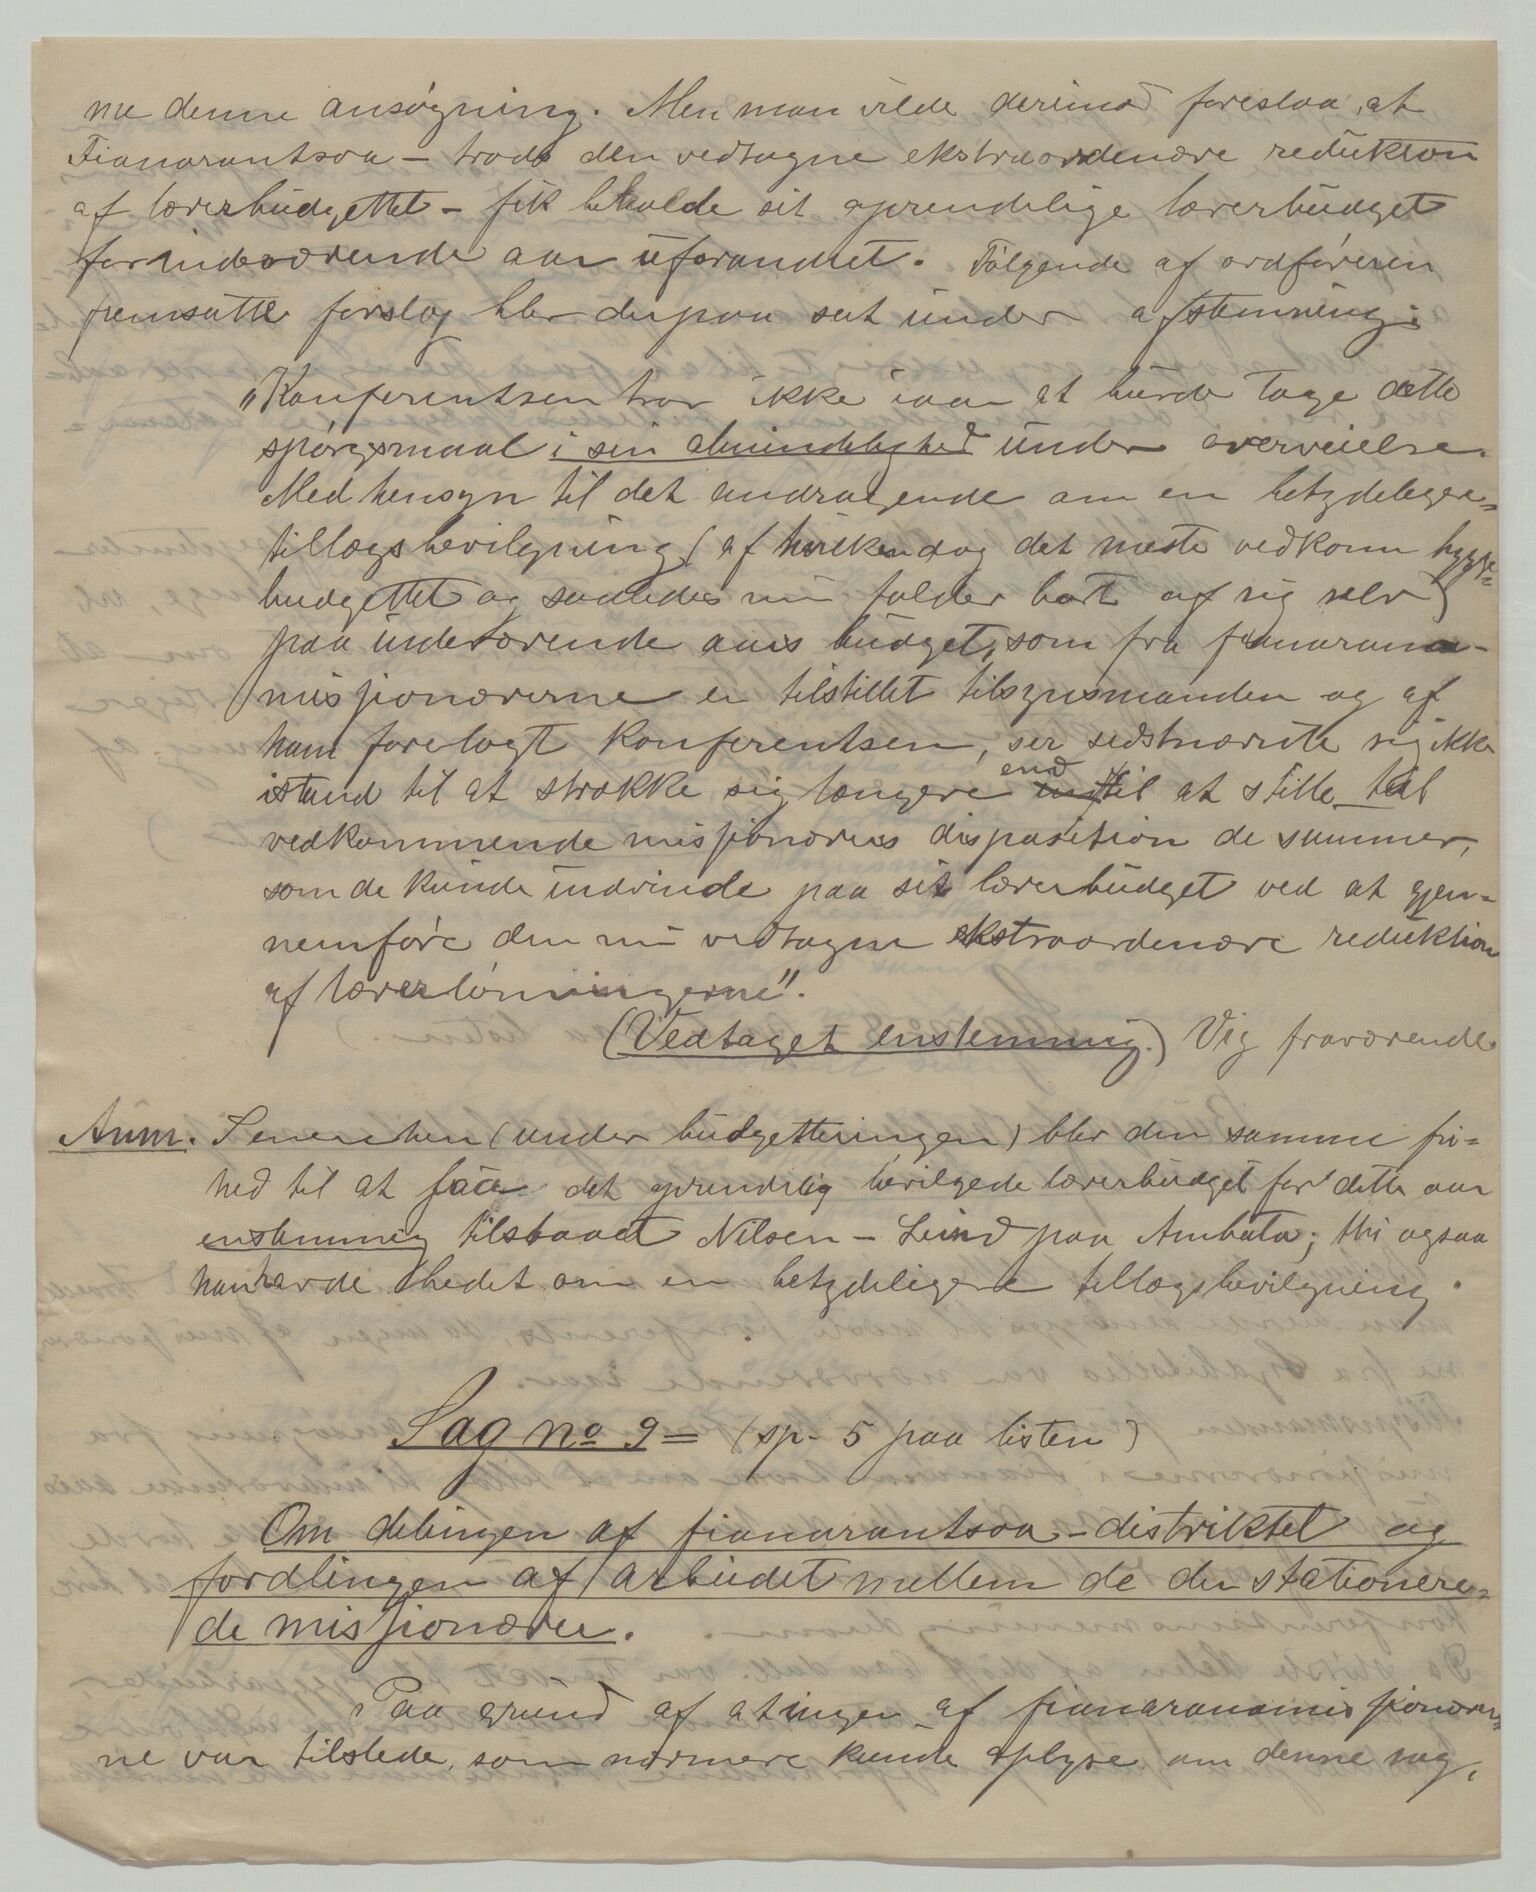 me denne ansøgning. Men man vilde derimod foreslaa, at
Fianarantsoa – trods den vedtagne ekstraordenære reduktion
af lærerbudgettet – fik beholde sit oprendelige lærerbudget
for indeværende aar uforandret. Følgende af ordføreren
fremsatte forslag blev derpaa sat under afstemning:
"Konferentsen tror ikke iaar at burde tage dette
spørgsmaal i sin almindelighed under overveielse.
Med hensyn til det andragende om en betydeligere
tillægsbevilgning (af hvilken dog det meste vedkom bygge=
budgettet og saaledes nu falder bort af sig selv)
paa indeværende aars budget, som fra fianarana-
missjonærerne er tilstillet tilsynsmanden og af
ham forelagt konferentsen, ser sidstnævnte sig ikke
istand til at strække sig længere end til at stille til
vedkommende missjonærers disposition de summer,
som de kunde indvinde paa sit lærerbudget ved at gjen=
nemføre den nu vedtagne ekstraordenære reduktion
af lærerlønningerne".
(Vedtaget enstemmig.) Vig fraværende
Anm. Senere hen (under budgetteringen) blev den samme fri=
hed til at faa det oprindelig bevilgede lærerbudget for dette aar
enstemmig tilstaaet Nilsen – Lund paa Ambato; thi ogsaa
han havde bedet om en betydeligere tillægsbevilgning.
Sag no 9 = (sp. 5 paa listen)
Om delingen af fianarantsoa-distriktet og
fordlingen af arbeidet mellem de der stationere=
de missjonærer.
Paa grund af at ingen af fianaranamissjonærer=
ne var tilstede, som nærmere kunde oplyse om denne sag,